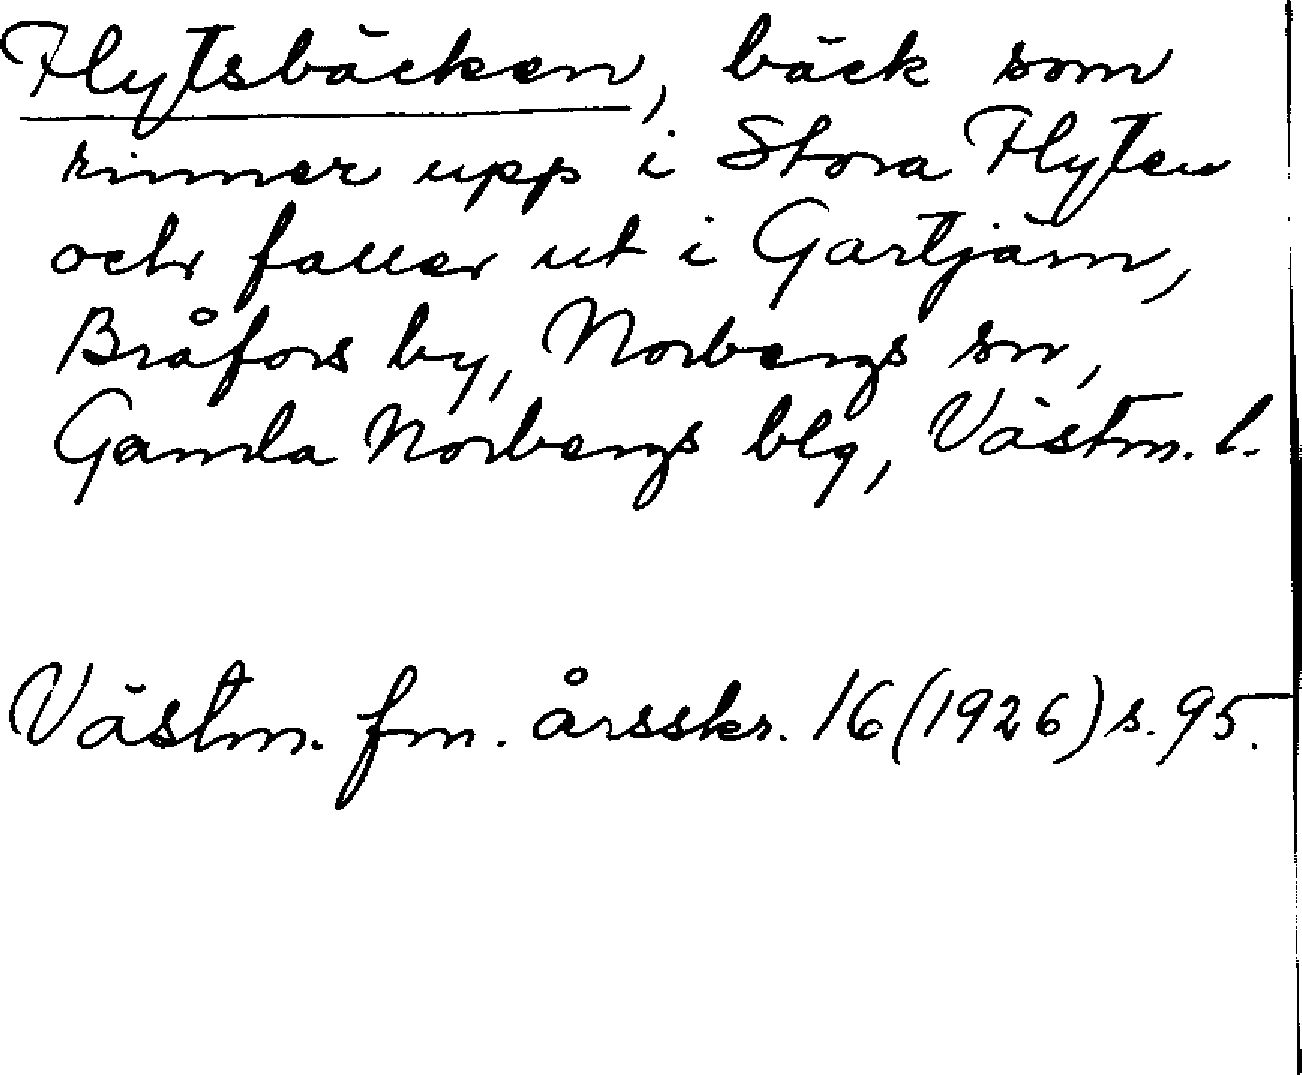 Flytsbäcken, bäck som
rinner upp i Stora Flyten
och faller ut i Gartjärn,
Bråfors by, Norbergs sn,
Gamla Norbergs blg, Västm. l.
Västm. fm. årsskr. 16 (1926) s. 95.